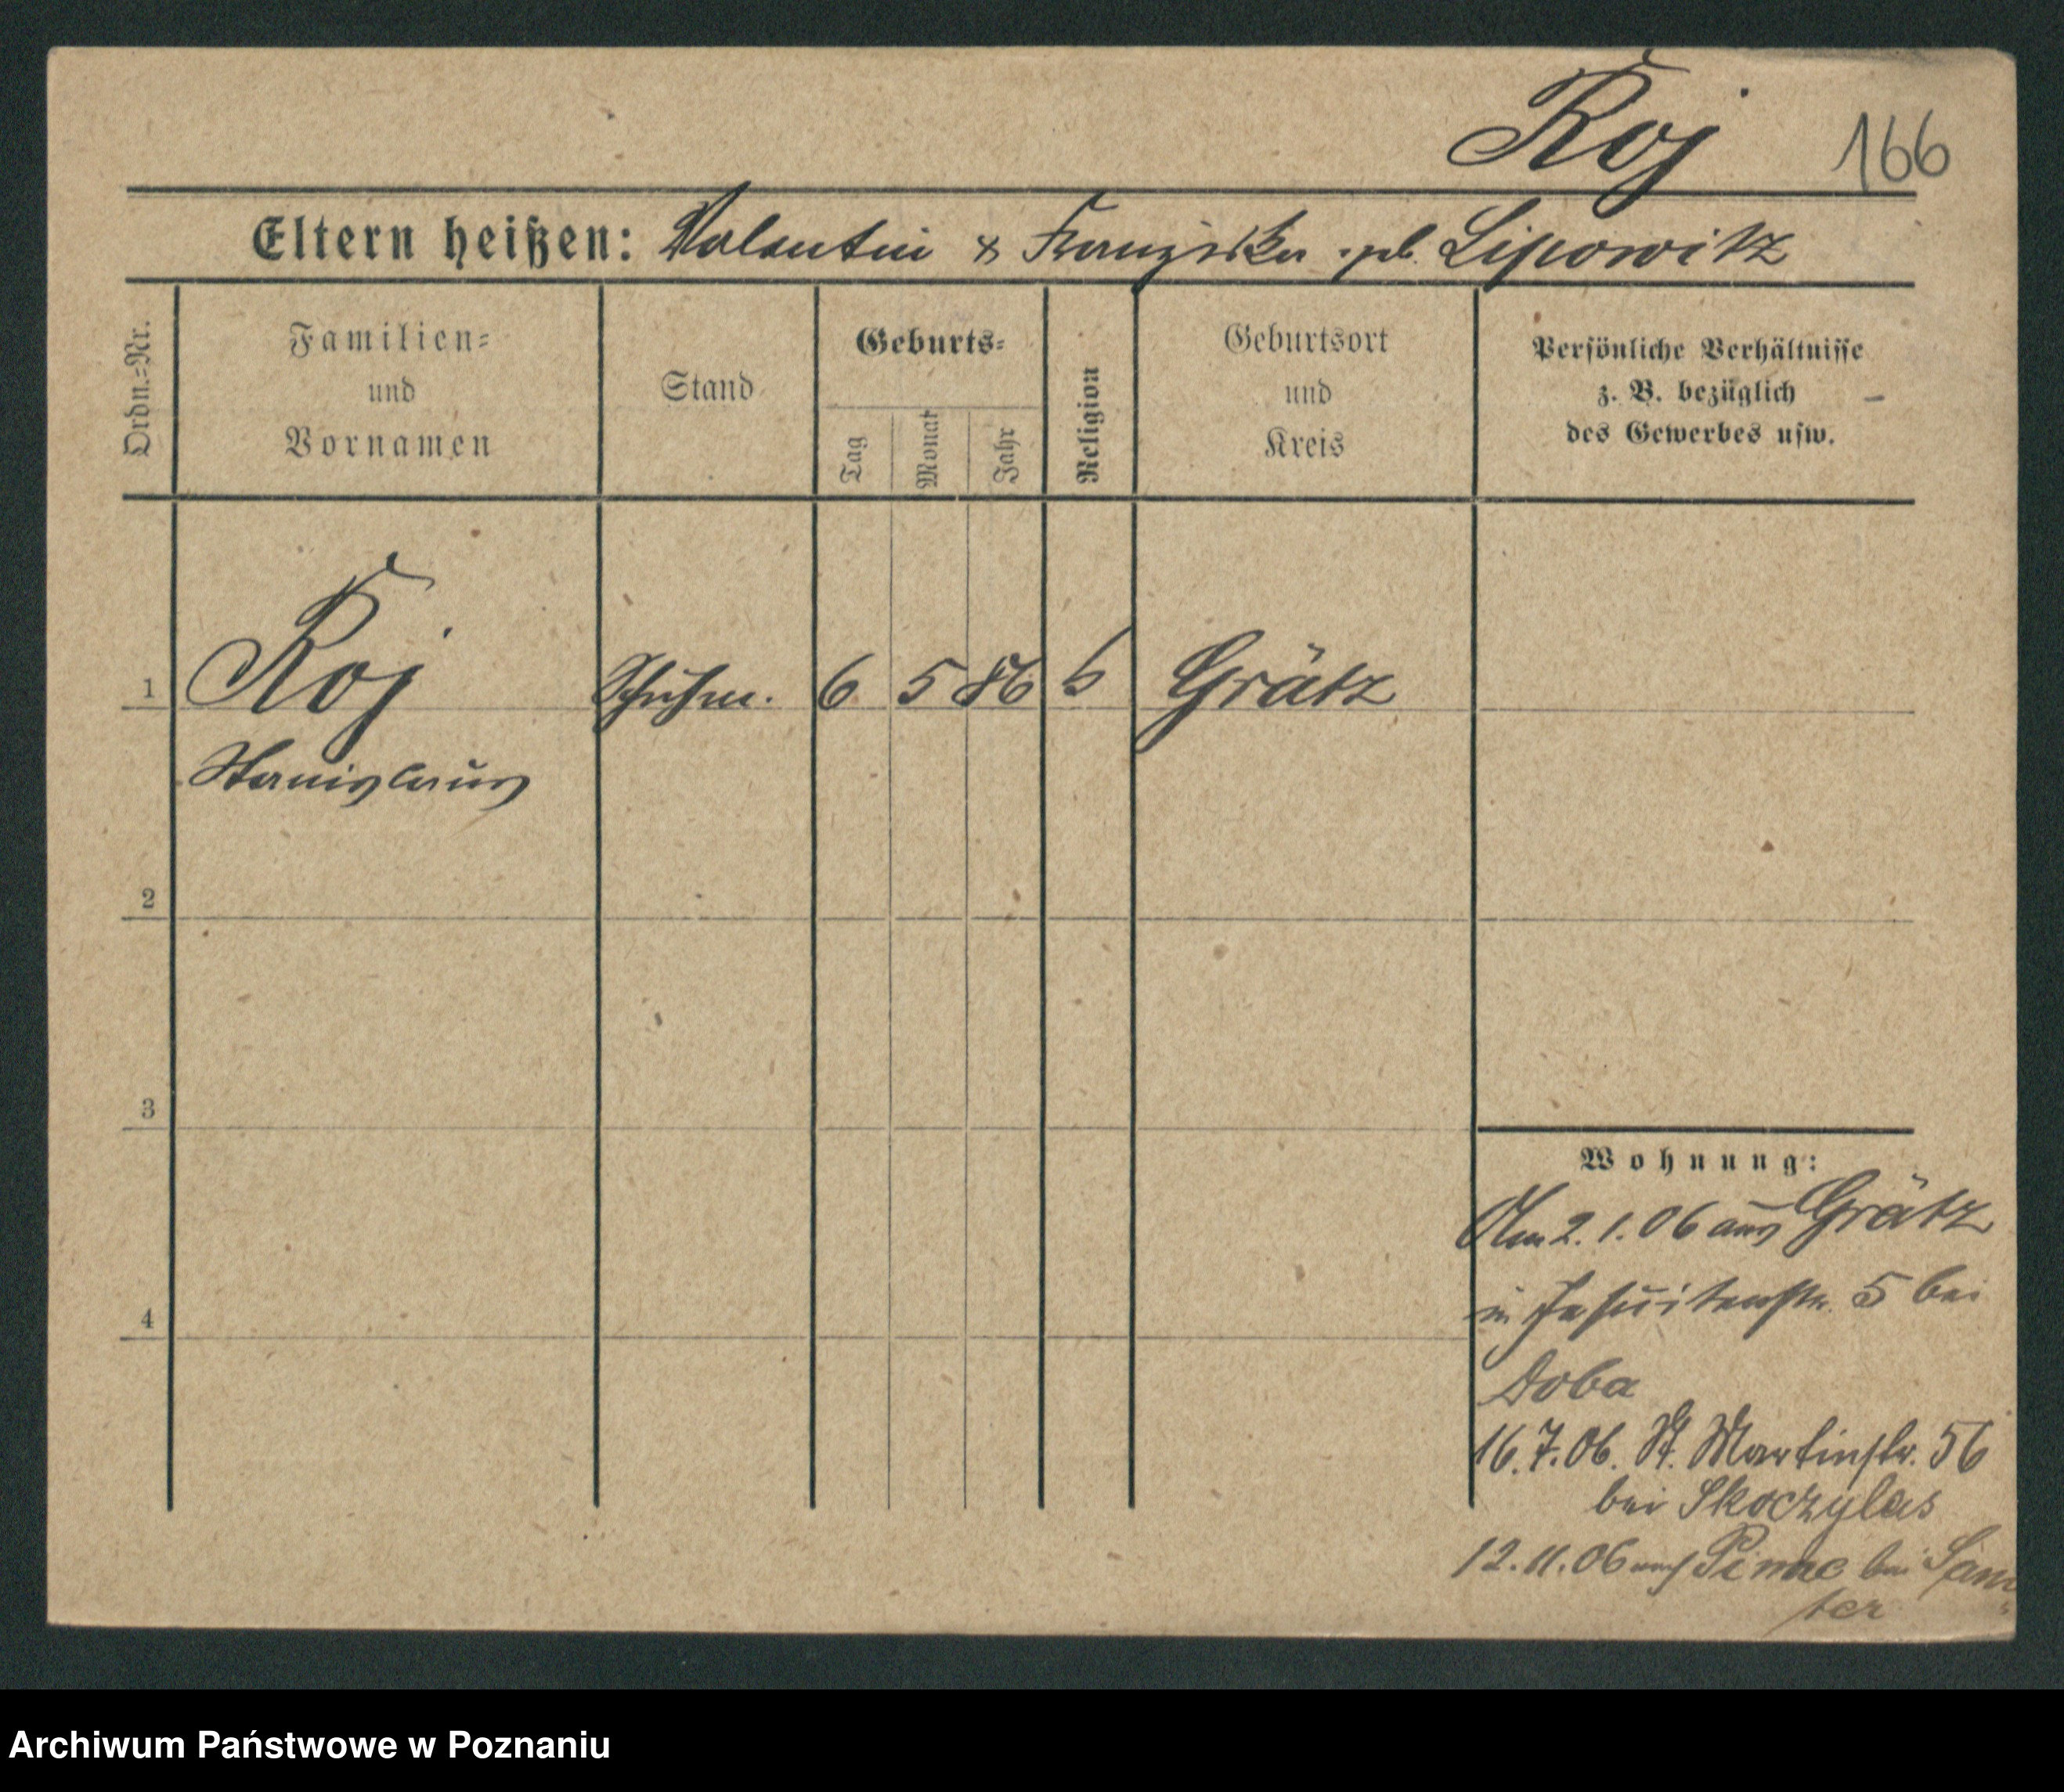 Roj 166
Eltern heißen: Valentin & Franziska geb. Lipowitz
Ordn.=Nr.
Familien=
und
Vornamen
Stand
Geburts=
Tag
Monat
Jahr
Religion
Geburtsort
und
Kreis
Persönliche Verhältnisse
z. B. bezüglich
des Gewerbes usw.
1 Roj Schuhm. 6 5 86 Grätz
Stanislaus
2
3
4
Wohnung:
Am 2.1.06 aus Grätz
in Jesuitenstr. 5 bei
Doba
16.7.06. St. Martinstr. 56
bei Skoczylas
12.11.06 nach Pinne bei Sam=
ter
Archiwum Państwowe w Poznaniu